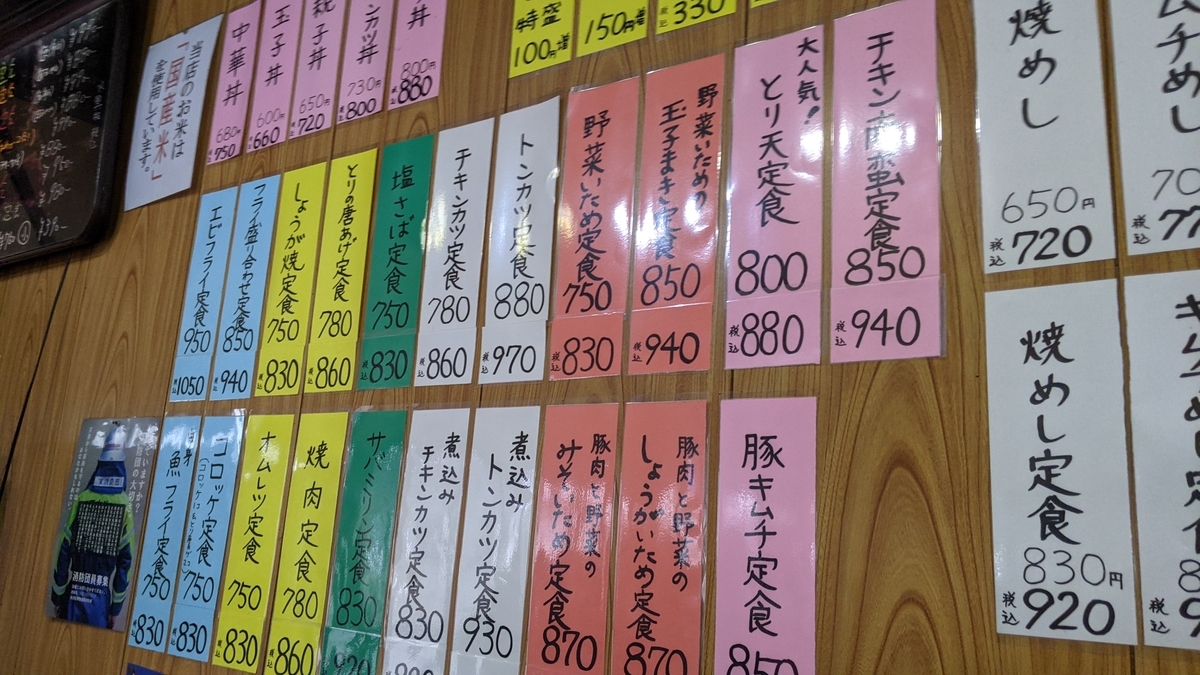 当店のお米は
「国産米」
を使用しています。
中華丼
680円
税込750
玉子丼
600円
税込660
親子丼
650円
税込720
カツ丼
730円
税込800
丼
800円
税込880
特盛
100円増
150円増
税込330
エビフライ定食
950
税込1050
フライ盛り合わせ定食
850
税込940
しょうが焼定食
750
税込830
とりの唐あげ定食
780
税込860
塩さば定食
750
税込830
チキンカツ定食
780
税込860
トンカツ定食
880
税込970
野菜いため定食
750
税込830
野菜いための
玉子まき定食
850
税込940
大人気!
とり天定食
800
税込880
チキン南蛮定食
850
税込940
焼めし
650円
税込720
ムチめし
税込
白身
魚フライ定食
750
税込830
コロッケ定食
750
税込830
オムレツ定食
750
税込830
焼肉定食
780
税込860
サバミリン定食
830
920
煮込み
チキンカツ定食
830
煮込み
トンカツ定食
930
豚肉と野菜の
みそいため定食
870
豚肉と野菜の
しょうがいため定食
870
豚キムチ定食
850
焼めし定食
830円
税込920
消防団員募集